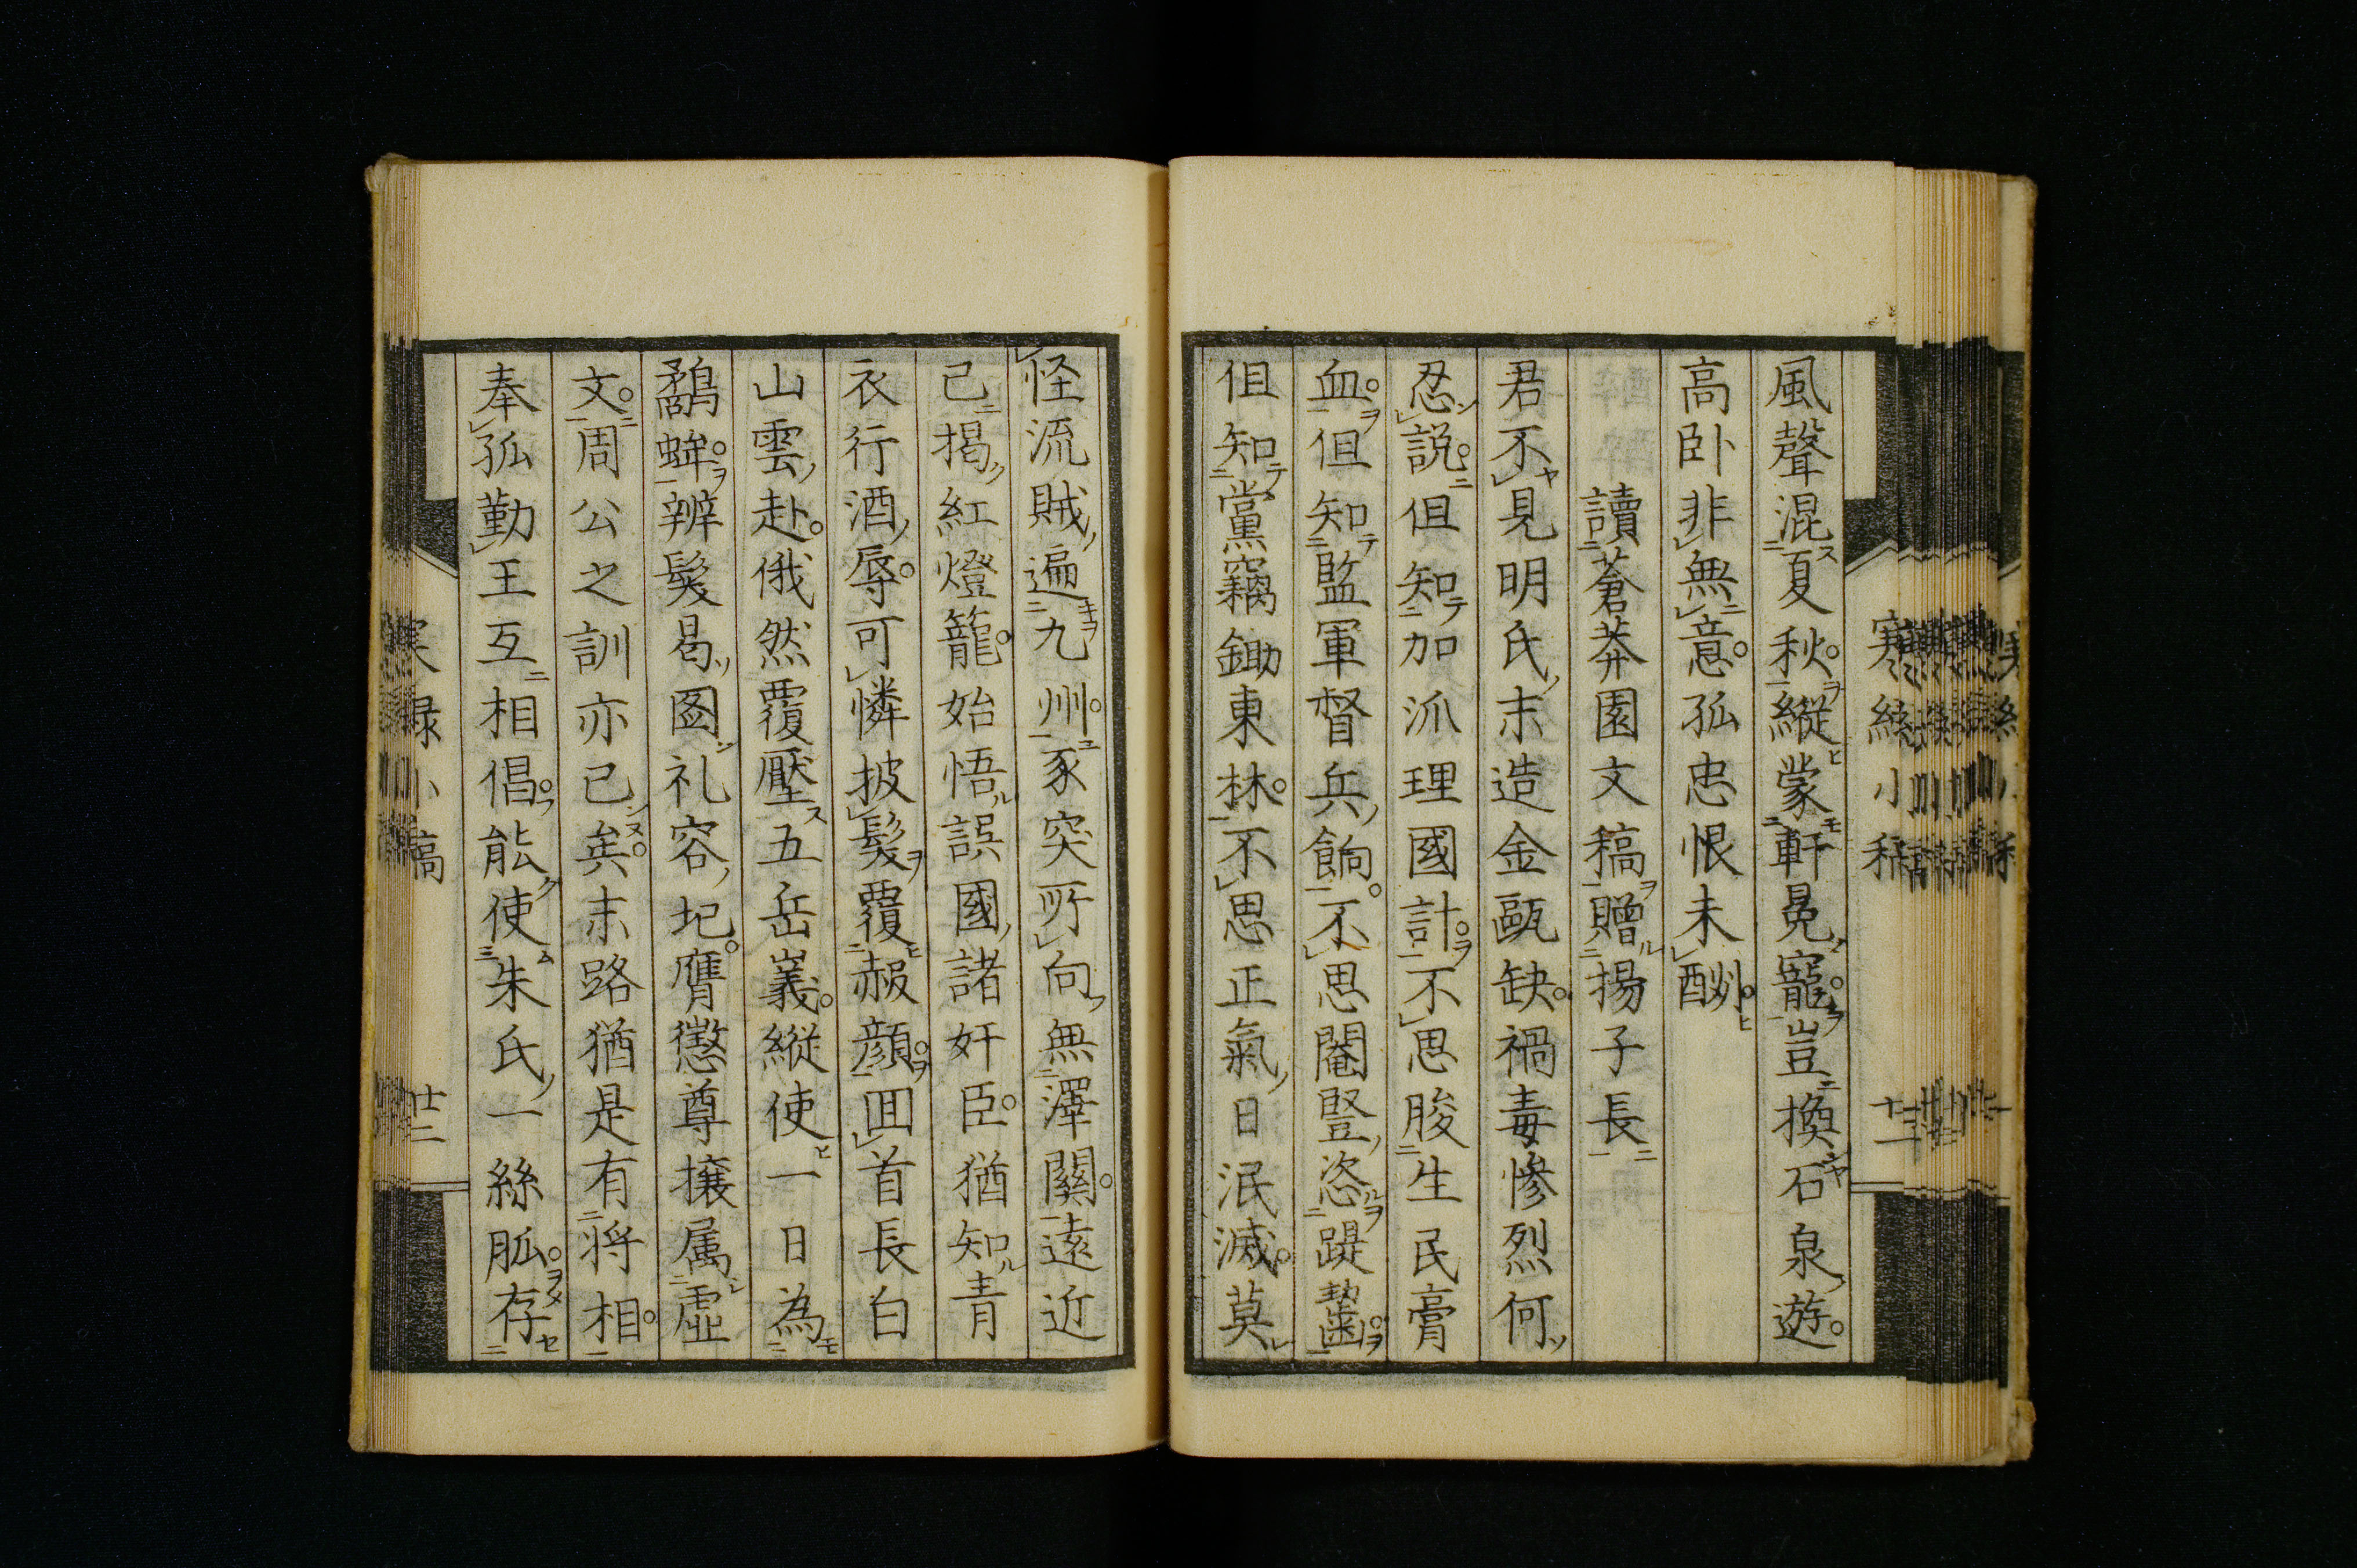 風聲混夏秋縱蒙軒冕寵豈換石泉遊
高卧非無意孤忠恨未酬
讀蒼莽園文稿贈揚子長
君不見明氏末造金甌缺禍毒惨烈何
忍說但知加派理國計不思朘生民膏
血但知監軍督兵餉不思閹豎恣踶齧
但知黨竊鋤東林不思正氣日泯滅莫
怪流賊遍九州豕突所向無澤關遠近
已揭紅燈籠始悟誤國諸奸臣猶知青
衣行酒辱可憐披髮覆赧顔回首長白
山雲赴俄然覆壓五岳嶷縱使一日為
鷸蚌辨髮曷図礼容圮膺懲尊攘属虛
文周公之訓亦已矣末路猶是有将相
奉孤勤王互相倡能使朱氏一絲胍存
寒緑小稿
廿二